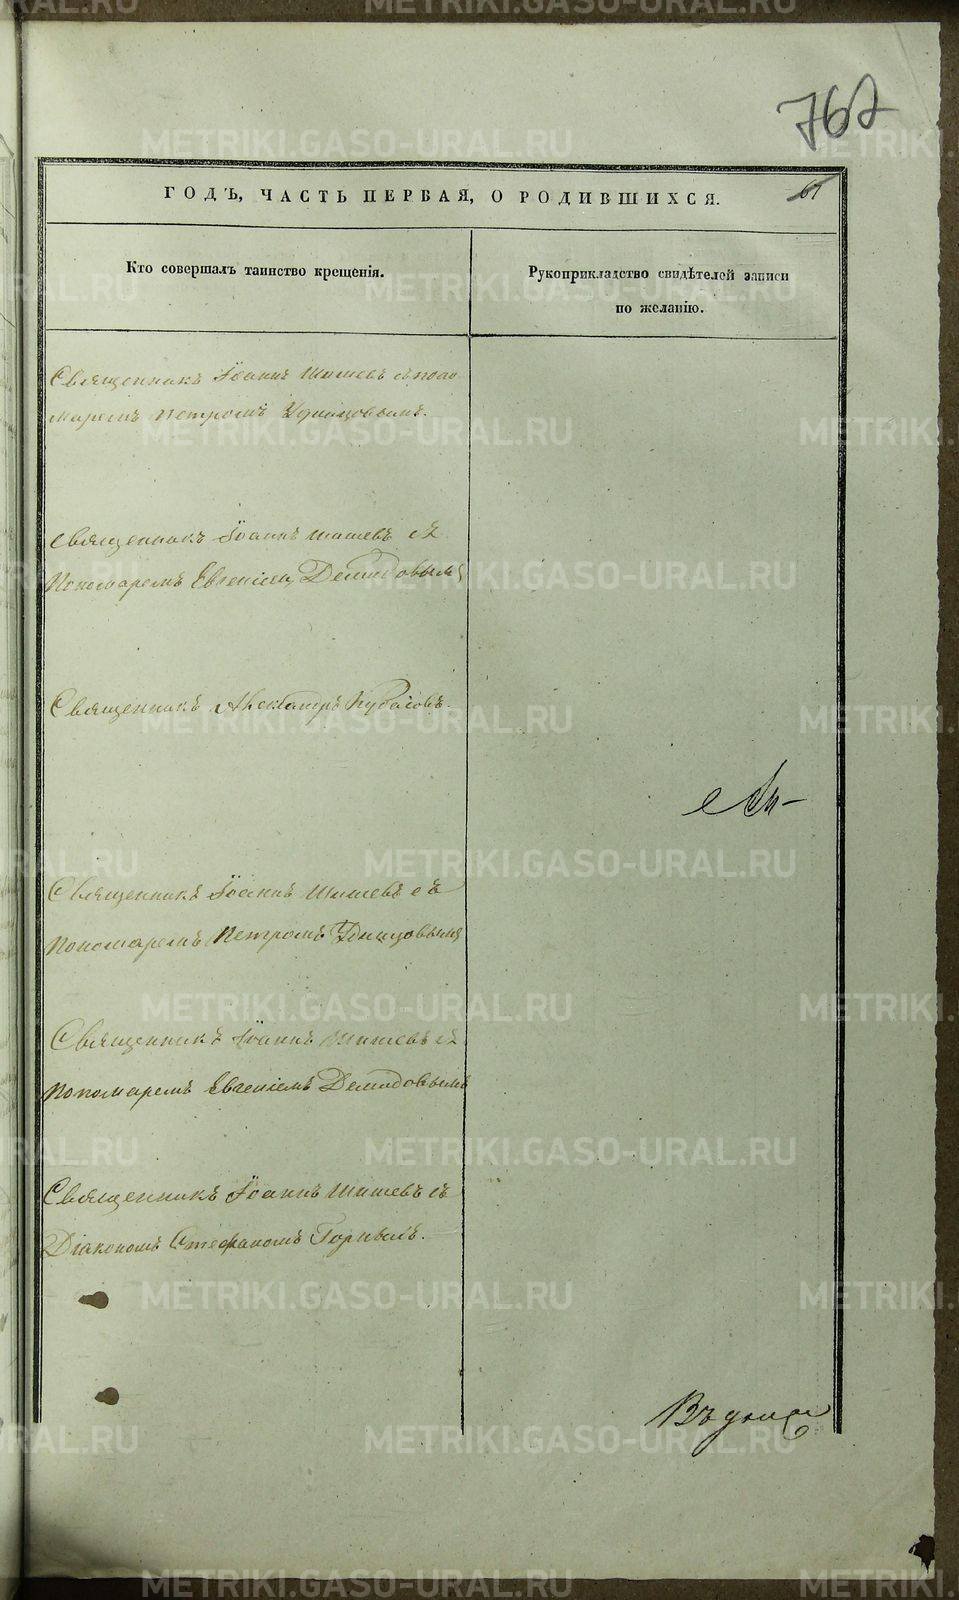 762
ГОДЪ, ЧАСТЬ ПЕРВАЯ, О РОДИВШИХСЯ.
61
Кто совершалъ таинство крещенія.
Рукоприкладство свидѣтелей записи
по желанію.
Священникъ Іоаннъ Шишевъ съ поно
маремъ Петромъ Удинцовымъ.
Священникъ Іоаннъ Шишевъ съ
Пономаремъ Евгеніемъ Демидовымъ
Священникъ Александръ
Священникъ Іоаннъ Шишевъ съ
Пономаремъ Петромъ Удинцовымъ
Священникъ Іоаннъ Шишевъ съ
Пономаремъ Евгеніемъ Демидовымъ
Священникъ Іоаннъ Шишевъ съ
Діакономъ Стефаномъ Горныхъ.
METRIKI.GASO-URAL.RU